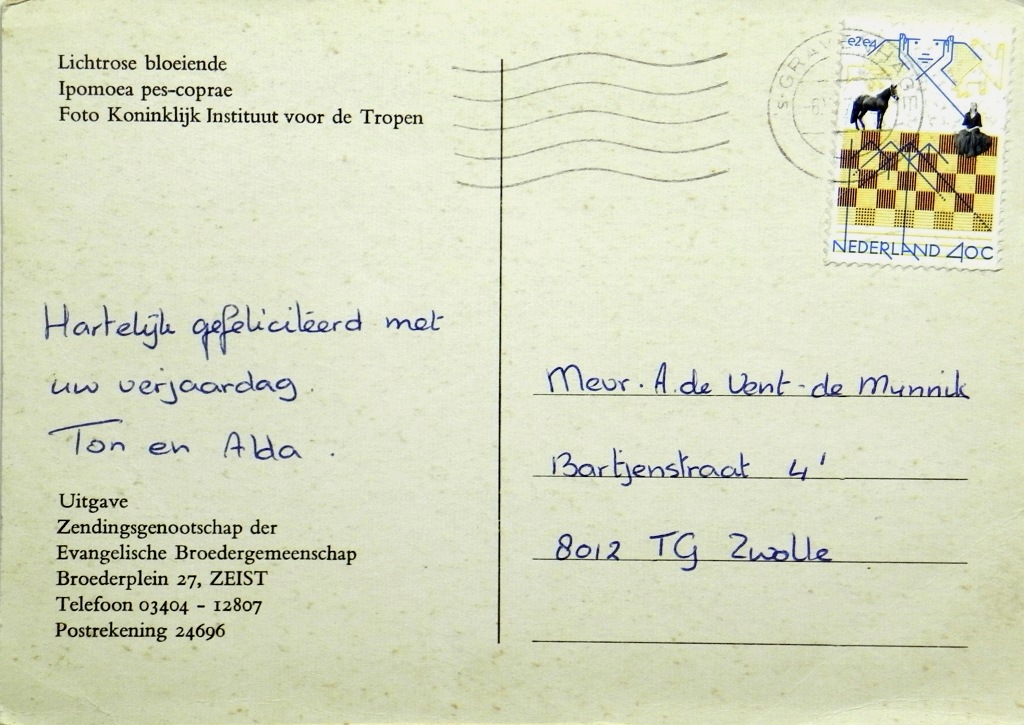 Lichtrose bloeiende
Ipomoea pes-coprae
Foto Koninklijk Instituut voor de Tropen
Hartelijk gefeliciteerd met
uw verjaardag.
Ton en Alda.
Uitgave
Zendingsgenootschap der
Evangelische Broedergemeenschap
Broederplein 27, ZEIST
Telefoon 03404 - 12807
Postrekening 24696
e2e4
NEDERLAND 40C
Mevr. A. de Vent-de Munnik
Bartjenstraat 4'
8012 TG Zwolle